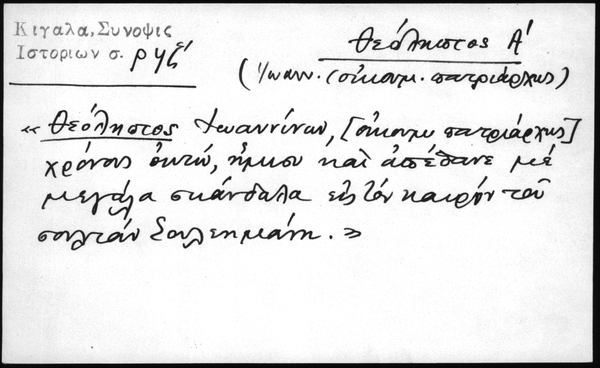 Κιγαλα, Συνοψις
Ιστοριων σ. ρνζ΄
Θεόληπτος Α΄
(Ἰωανν. (οἰκουμ. πατριάρχης)
« Θεόληπτος Ἰωαννίνων, [οἰκουμ. πατριάρχης]
χρόνους ὀκτώ, ἥμισυ καὶ ἀπέθανε μέ
μεγάλα σκάνδαλα εἰς τὸν καιρόν τοῦ
σουλτάν Σουλεημάνη. »